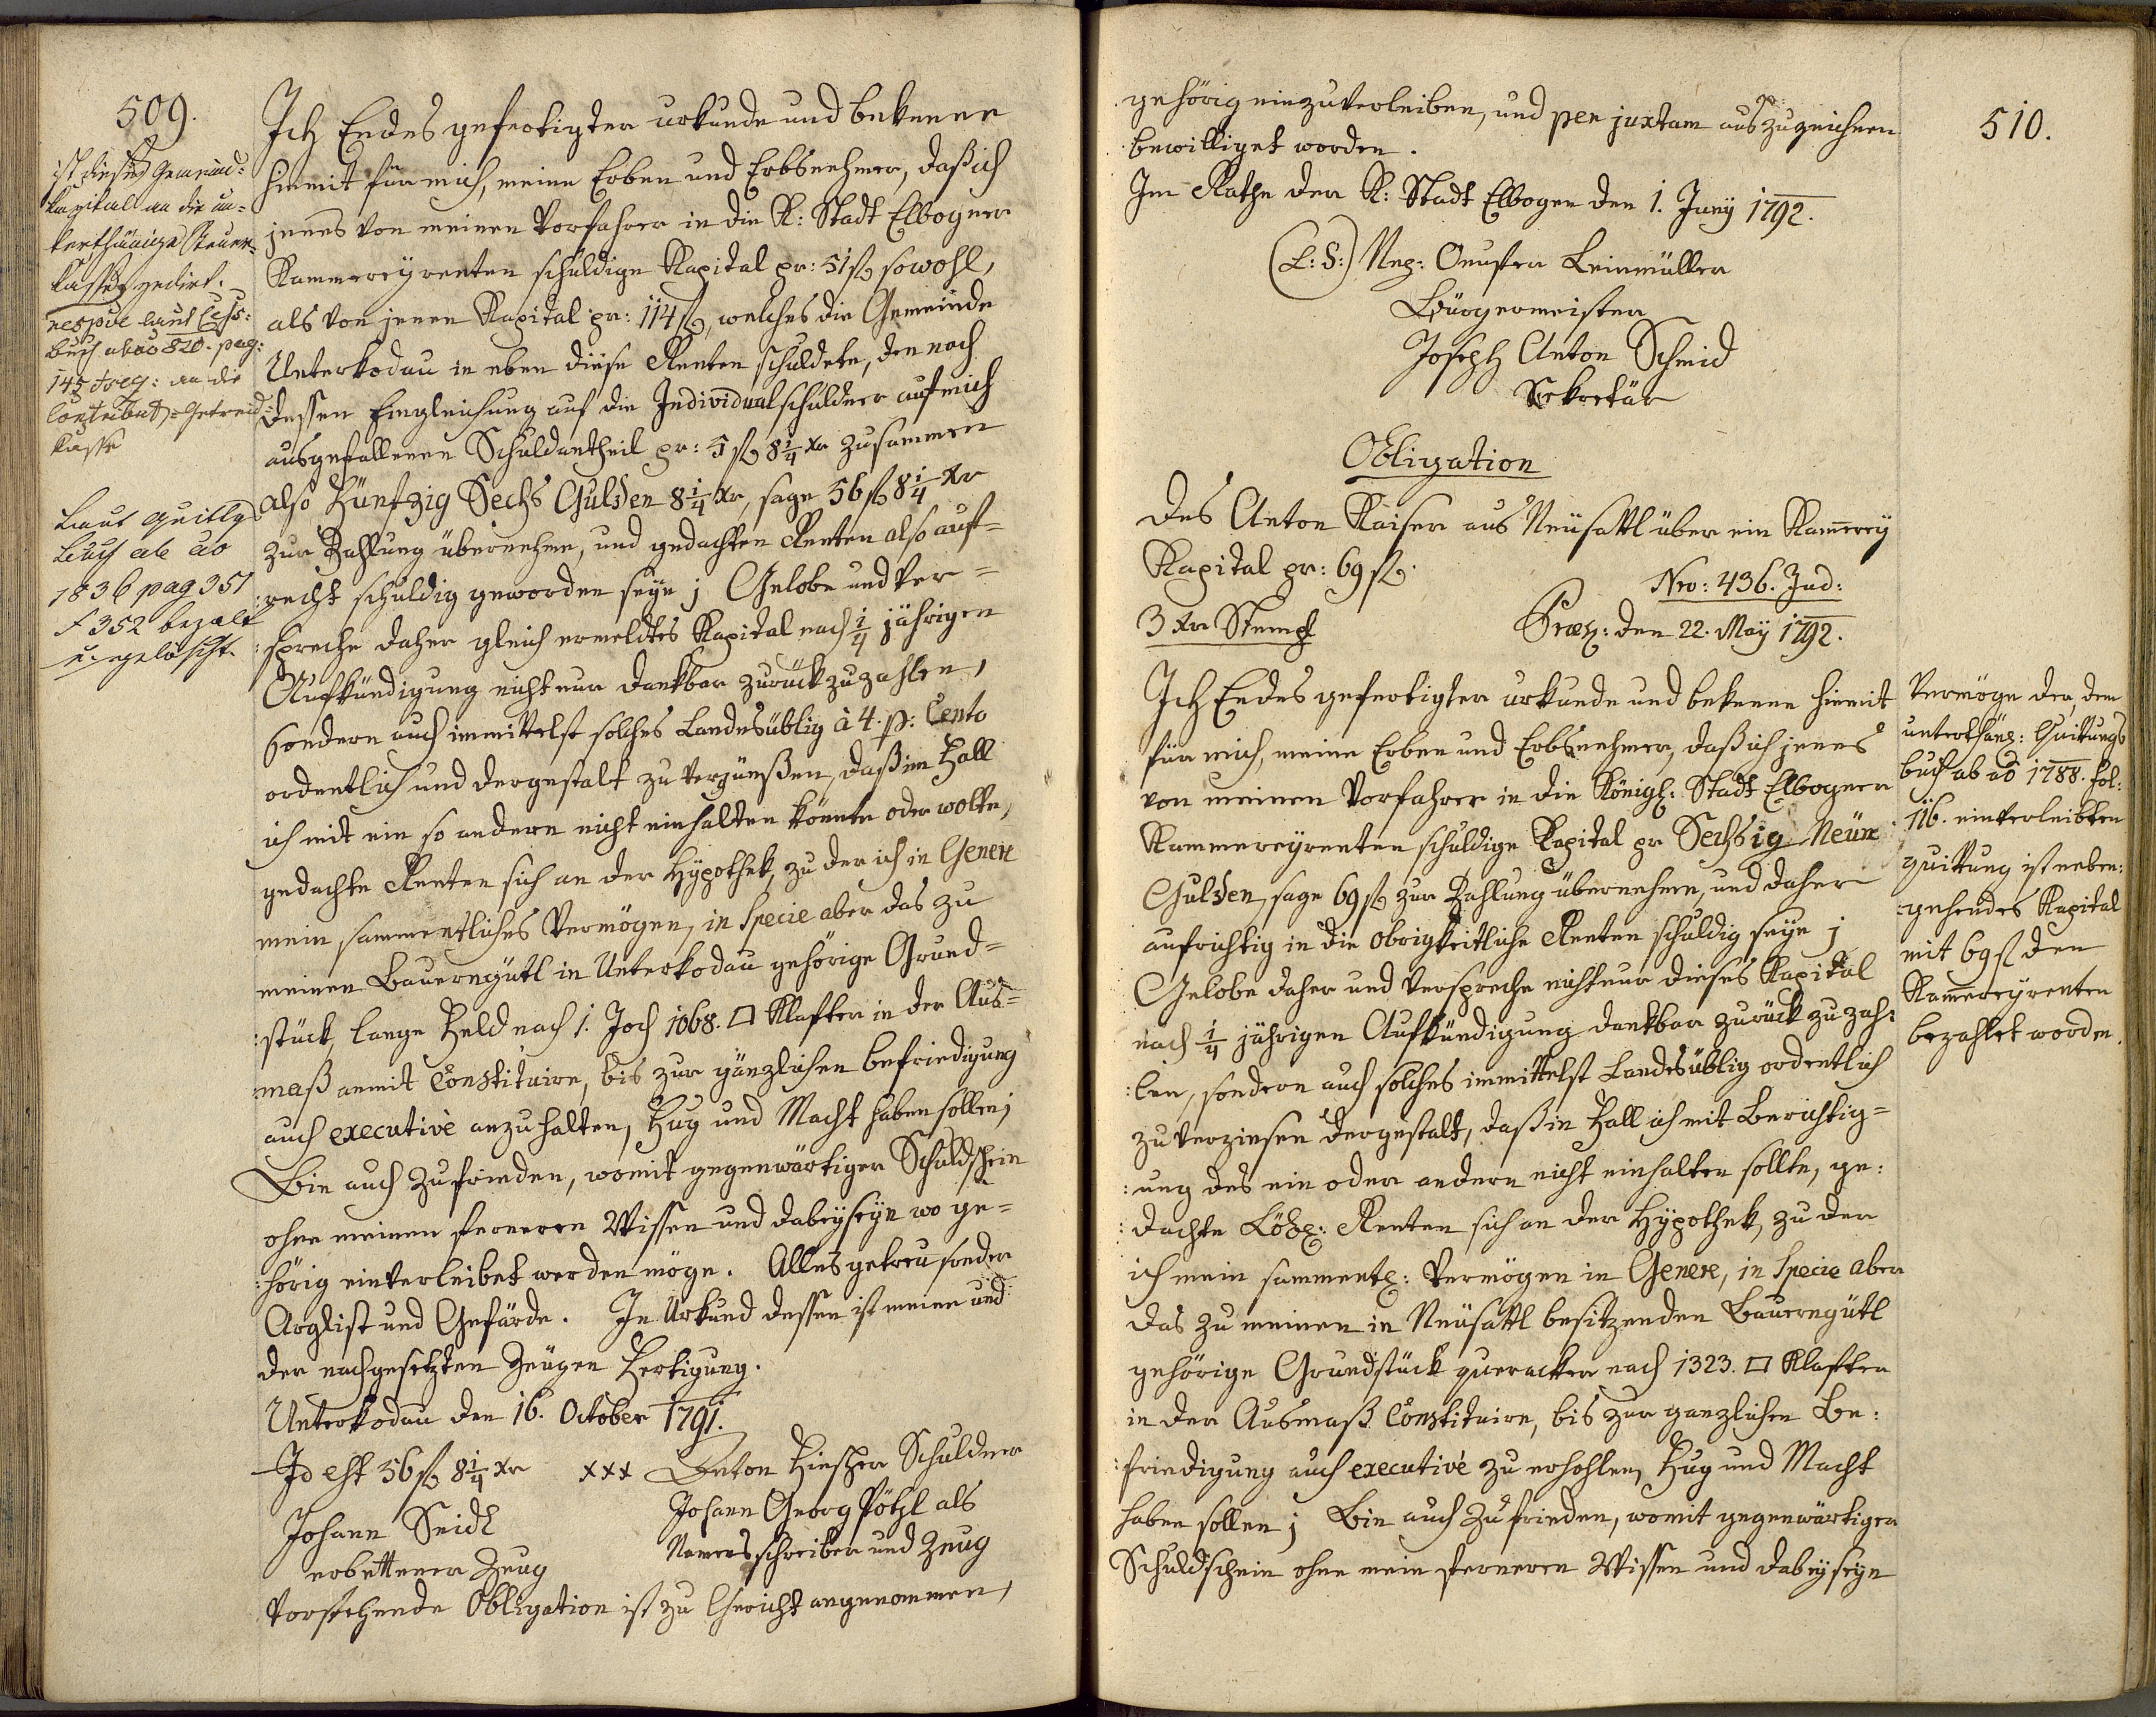 509.
ist dieses Gemeind=
kapital an die un=
terthänige Steuer=
kasse zedirt.
respve laut Cess:
buch ab ao 820. pag:
145 et seq: an die
Contribut=Getreid=
kasse
Laut Quittgs
buch ab ao
1836 pag 351
f 352 bezalt
u. gelöscht.
Ich Endesgefertigter urkunde und bekenne
hiemit für mich, meine Erben und Erbsnehmer, daß ich
jenes von meinem Vorfahrer in die K: Stadt Elbogner
Kammereyrenten schuldige Kapital pr: 51 fl, sowohl,
als von jenem Kapital pr: 114 fl, welches die Gemeinde
Unterkodau in eben diese Renten schuldete, den nach
dessen Eingleichung auf die Individualschuldner auf mich
ausgefallenen Schuldantheil pr: 5 fl 8 1/4 xr zusammen
also Fünfzig Sechs Gulden 8 1/4 xr, sage 56 fl 8 1/4 xr
zur Zahlung übernehme, und gedachten Renten also auf=
:recht schuldig geworden seye; Gelobe und ver=
:spreche daher gleich ermeldtes Kapital nach 1/4 jähriger
Aufkündigung nicht nur dankbar zurückzuzahlen,
sondern auch immittelst solches Landesüblig à 4. p: Cento
ordentlich und dergestalt zu verzünßen, daß im Fall
ich mit ein so andern nicht einhalten könnte oder wollte,
gedachte Renten sich an der Hypothek, zu der ich in Genere
mein sammentliches Vermögen, in Specie aber das zu
meinem Bauerngütl in Unterkodau gehörige Grund=
:stück, lange Feld nach 1. Joch 1068. □ Klafter in der Aus=
:maß anmit Constituire, bis zur gänzlichen befriedigung
auch executivè anzuhalten, Fug und Macht haben sollen;
Bin auch zufrieden, womit gegenwärtiger Schuldschein
ohne meinem ferneren Wissen und dabeyseyn wo ge=
:hörig einverleibet werden möge. Alles getreu sonder
Arglist und Gefärde. In Urkund dessen ist meine und
der nachgesetzten Zeugen Fertigung.
Unterkodau den 16. October 1791.
Id est 56 fl 8 1/4 xr xxx Anton Fischer Schuldner
Johann Seidl Johann Georg Pötzl als
erbettener Zeug Namensschreiber und Zeug
Vorstehende Obligation ist zu Gericht angenommen,
510.
gehörig einzuverleiben, und per juxtam auszuzeichnen
bewilliget worden.
Im Rathe der K: Stadt Elbogen den 1. Juny 1792.
(L:S:) Nep: Leinmüller
Bürgermeister
Joseph Anton Schmid
Sekretär
Obligation
des Anton Kaiser aus Neusattl über ein Kammerey
Kapital pr: 69 fl.
Nro: 436. Jud:
3 xr Stempf Præs: den 22. May 1792.
Ich Endesgefertigter urkunde und bekenne hiemit
für mich, meine Erben und Erbsnehmer, daß ich jenes
von meinem Vorfahrer in die Königl: Stadt Elbogner
Kammereyrenten schuldige Kapital pr Sechszig Neun
Gulden, sage 69 fl zur Zahlung übernehme, und daher
aufrichtig in die obrigkeitliche Renten schuldig seye;
Gelobe daher und verspreche nicht nur dieses Kapital
nach 1/4 jähriger Aufkündigung dankbar zurück zu zah=
:len, sondern auch solches immittelst Landesüblig ordentlich
zu verzinsen dergestalt, daß in Fall ich mit Berichtig=
:ung des ein oder andern nicht einhalten sollte, ge:
:dachte Löbl: Renten sich an der Hypothek, zu der
ich mein sammentl: Vermögen in Genere, in Specie aber
das zu meinem in Neusattl besitzenden Bauerngütl
gehörige Grundstück queracker nach 1323. □ Klafter
in der Ausmaß Constituire, bis zur ganzlichen Be:
:friedigung auch executivè zu erhohlen, Fug und Macht
haben sollen; Bin auch zufrieden, womit gegenwärtiger
Schuldschein ohne mein ferneren Wissen und dabeyseyn
Vermöge der, dem
unterthän: Quittungs
buch ab ao 1788. fol:
116. einverleibten
quittung ist neben:
:gehendes Kapital
mit 69 fl den
Kammereyrenten
bezahlet worden.